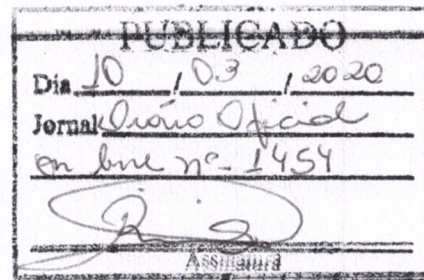 PUBLICADO
Dia 10 / 03 / 2020
Jornal Diário Oficial
on line nº 1454
Assinatura